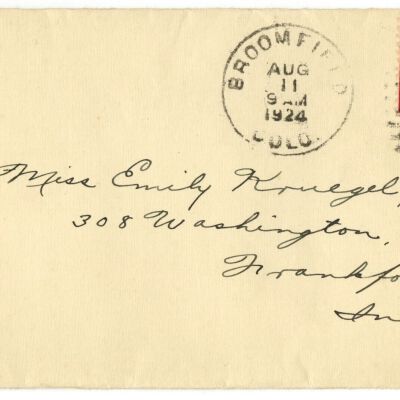 BROOMFIELD
AUG
11
9 AM
1924
COLO.
Miss Emily Kruegel,
308 Washington,
Frankfo
In